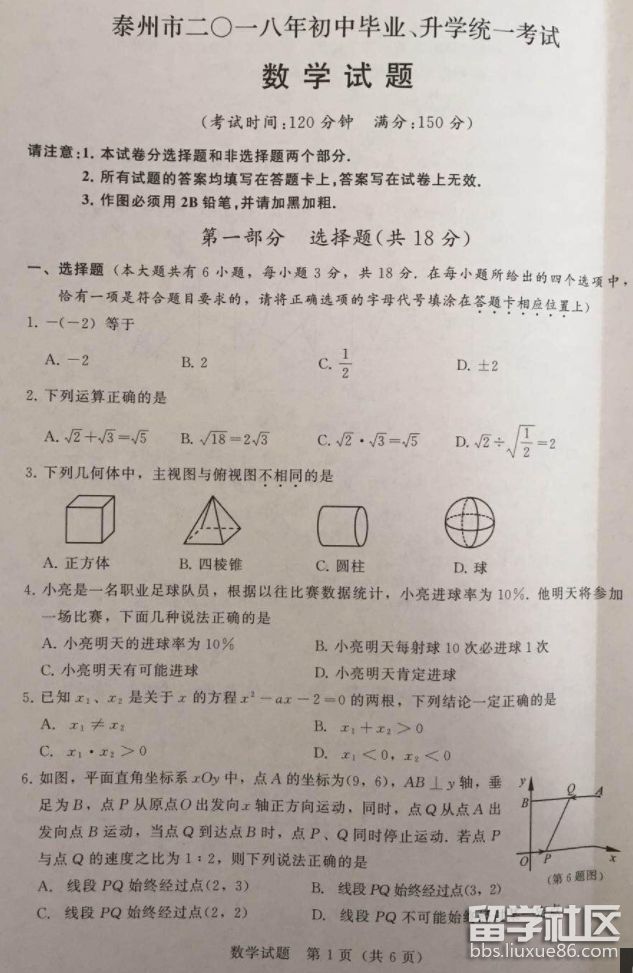 泰州市二〇一八年初中毕业、升学统一考试
数学试题
(考试时间:120分钟 满分:150分)
请注意:1. 本试卷分选择题和非选择题两个部分.
2. 所有试题的答案均填写在答题卡上,答案写在试卷上无效.
3. 作图必须用2B铅笔,并请加黑加粗.
第一部分 选择题(共18分)
一、选择题(本大题共有6小题,每小题3分,共18分.在每小题所给出的四个选项中,
恰有一项是符合题目要求的,请将正确选项的字母代号填涂在答题卡相应位置上)
1. −(−2)等于
A. −2 B. 2 C. 1/2 D. ±2
2. 下列运算正确的是
A. √2+√3=√5 B. √18=2√3 C. √2·√3=√5 D. √2÷√(1/2)=2
3. 下列几何体中,主视图与俯视图不相同的是
A. 正方体 B. 四棱锥 C. 圆柱 D. 球
4. 小亮是一名职业足球队员,根据以往比赛数据统计,小亮进球率为10%.他明天将参加
一场比赛,下面几种说法正确的是
A. 小亮明天的进球率为10% B. 小亮明天每射球10次必进球1次
C. 小亮明天有可能进球 D. 小亮明天肯定进球
5. 已知x₁、x₂是关于x的方程x²−ax−2=0的两根,下列结论一定正确的是
A. x₁≠x₂ B. x₁+x₂>0
C. x₁·x₂>0 D. x₁<0,x₂<0
6. 如图,平面直角坐标系xOy中,点A的坐标为(9,6),AB⊥y轴,垂
足为B,点P从原点O出发向x轴正方向运动,同时,点Q从点A出
发向点B运动,当点Q到达点B时,点P、Q同时停止运动.若点P
与点Q的速度之比为1:2,则下列说法正确的是
y B Q A
O P x
(第6题图)
A. 线段PQ始终经过点(2,3) B. 线段PQ始终经过点(3,2)
C. 线段PQ始终经过点(2,2) D. 线段PQ不可能始
数学试题 第1页(共6页)
留学社区
bbs.liuxue86.com